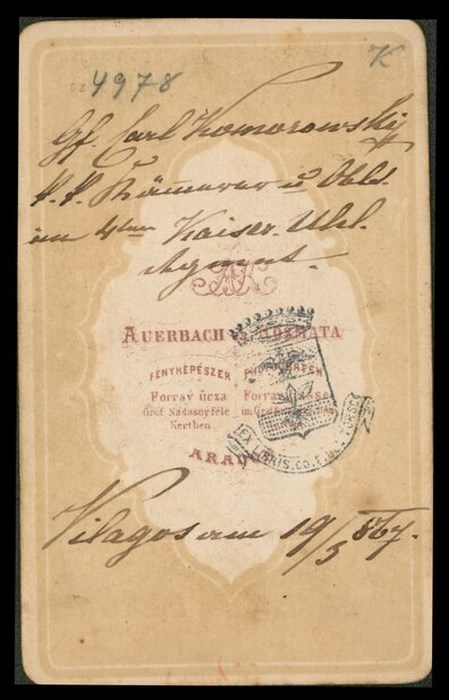 4978
K
Gf. Carl Komorowski
k. k. Kämmerer u Oblt.
im 4ten Kaiser. Uhl.
Regment.
AK
AUERBACH & KOZMATA
FÉNYKÉPÉSZEK
Forray úcza
Gróf Nádasdy féle
Kertben
Forray
im Graf
ARADON
EX LIBRIS. CO. E. DE.
Vilagos am 19/5 867.